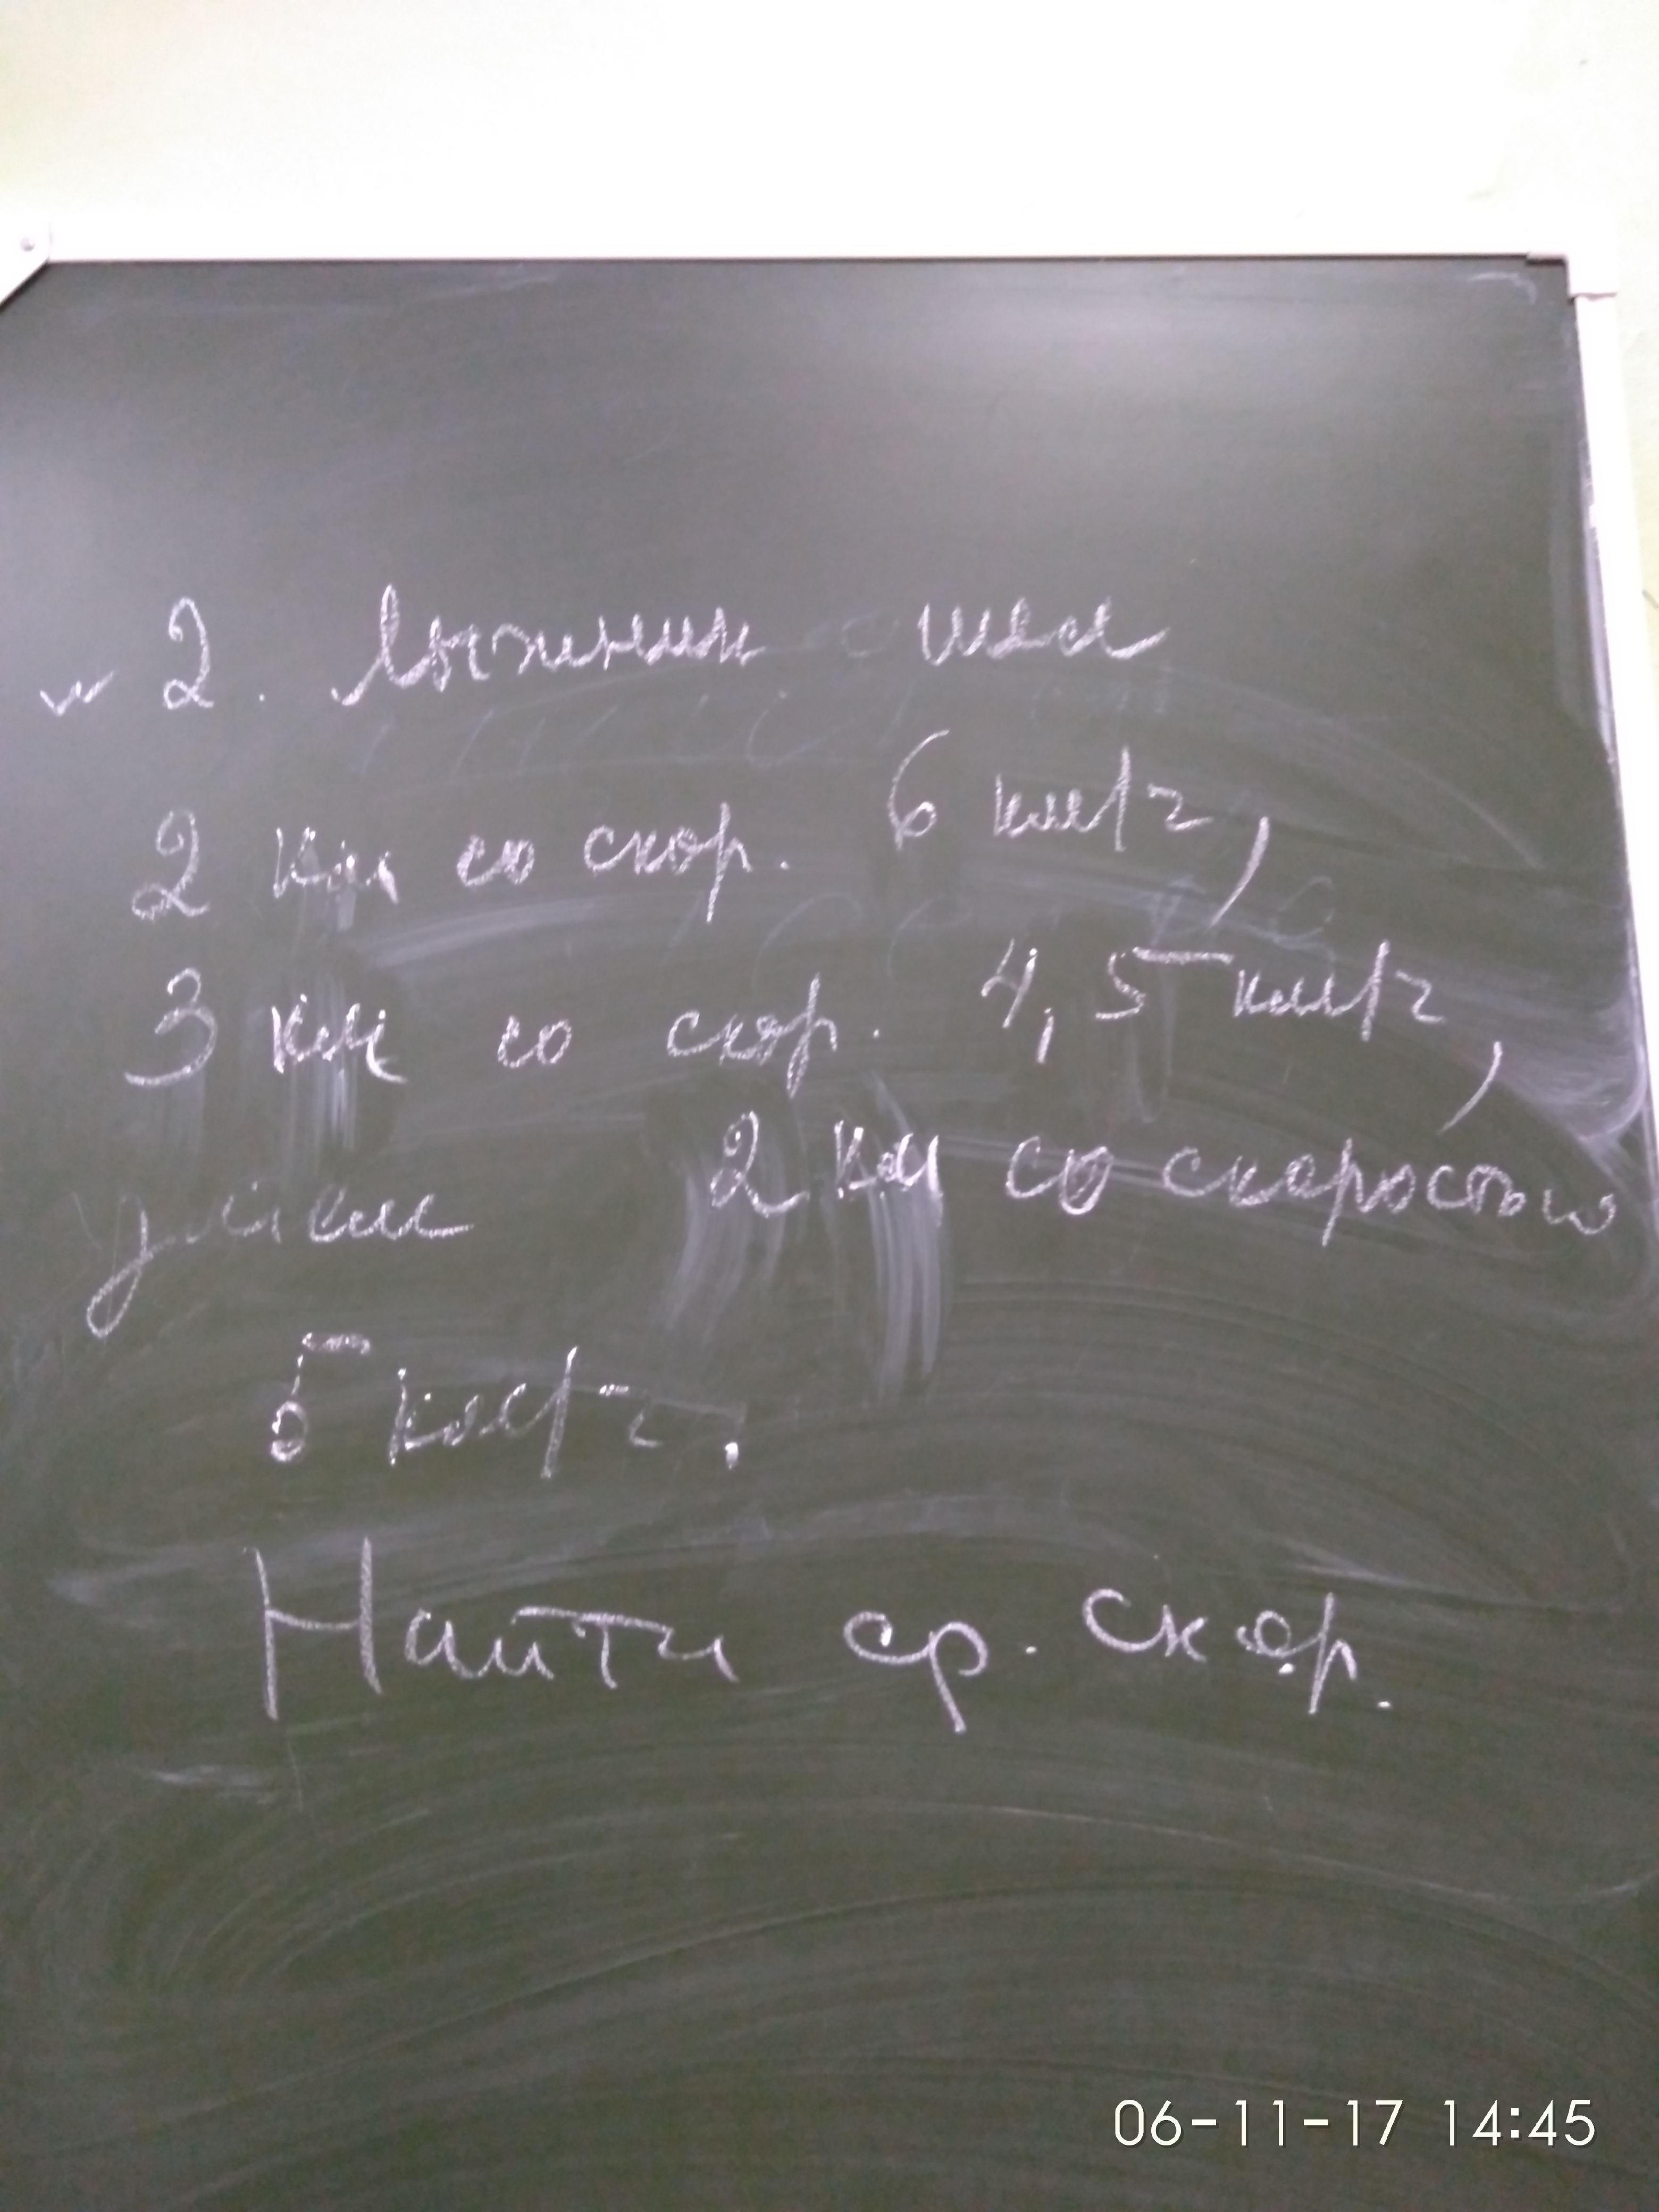 2. Лыжник шел
2 км со скор. 6 км/ч,
3 км со скор. 4,5 км/ч,
2 км со скоростью
5 км/ч.
Найти ср. скор.
06-11-17 14:45